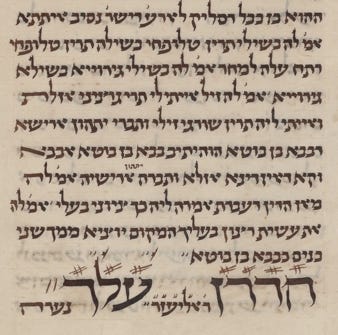 ההוא בן בבל דסליק לארעדישר׳ נסיב איתתא
אמ׳ לה בשילי תרין טלופחי בשילה תרין טלופחי
רתח עלה למחר אמ׳ לה בשילי גירוייא בשילא
גירוייא אמ׳ לה זיל אייתי לי תרי בוציני אזלת
ואייתי ליה תרין שרגי זילי ותברי יתהון ארישא
דבבא בן בוטא הוה יתיב בבא בן בוטא אבבא
יתהון
וקא דאין דינא אזלא ותברה ארישיה אמ׳ לה
מאן הדין דעברת אמרה ליה כך ציוני בעלי אמ׳ לה
את עשית רצון בעליך המקום יוציא ממך שני
בנים כבבא בן בוטא
הדרן עלך
ר׳ אליעזר נערה